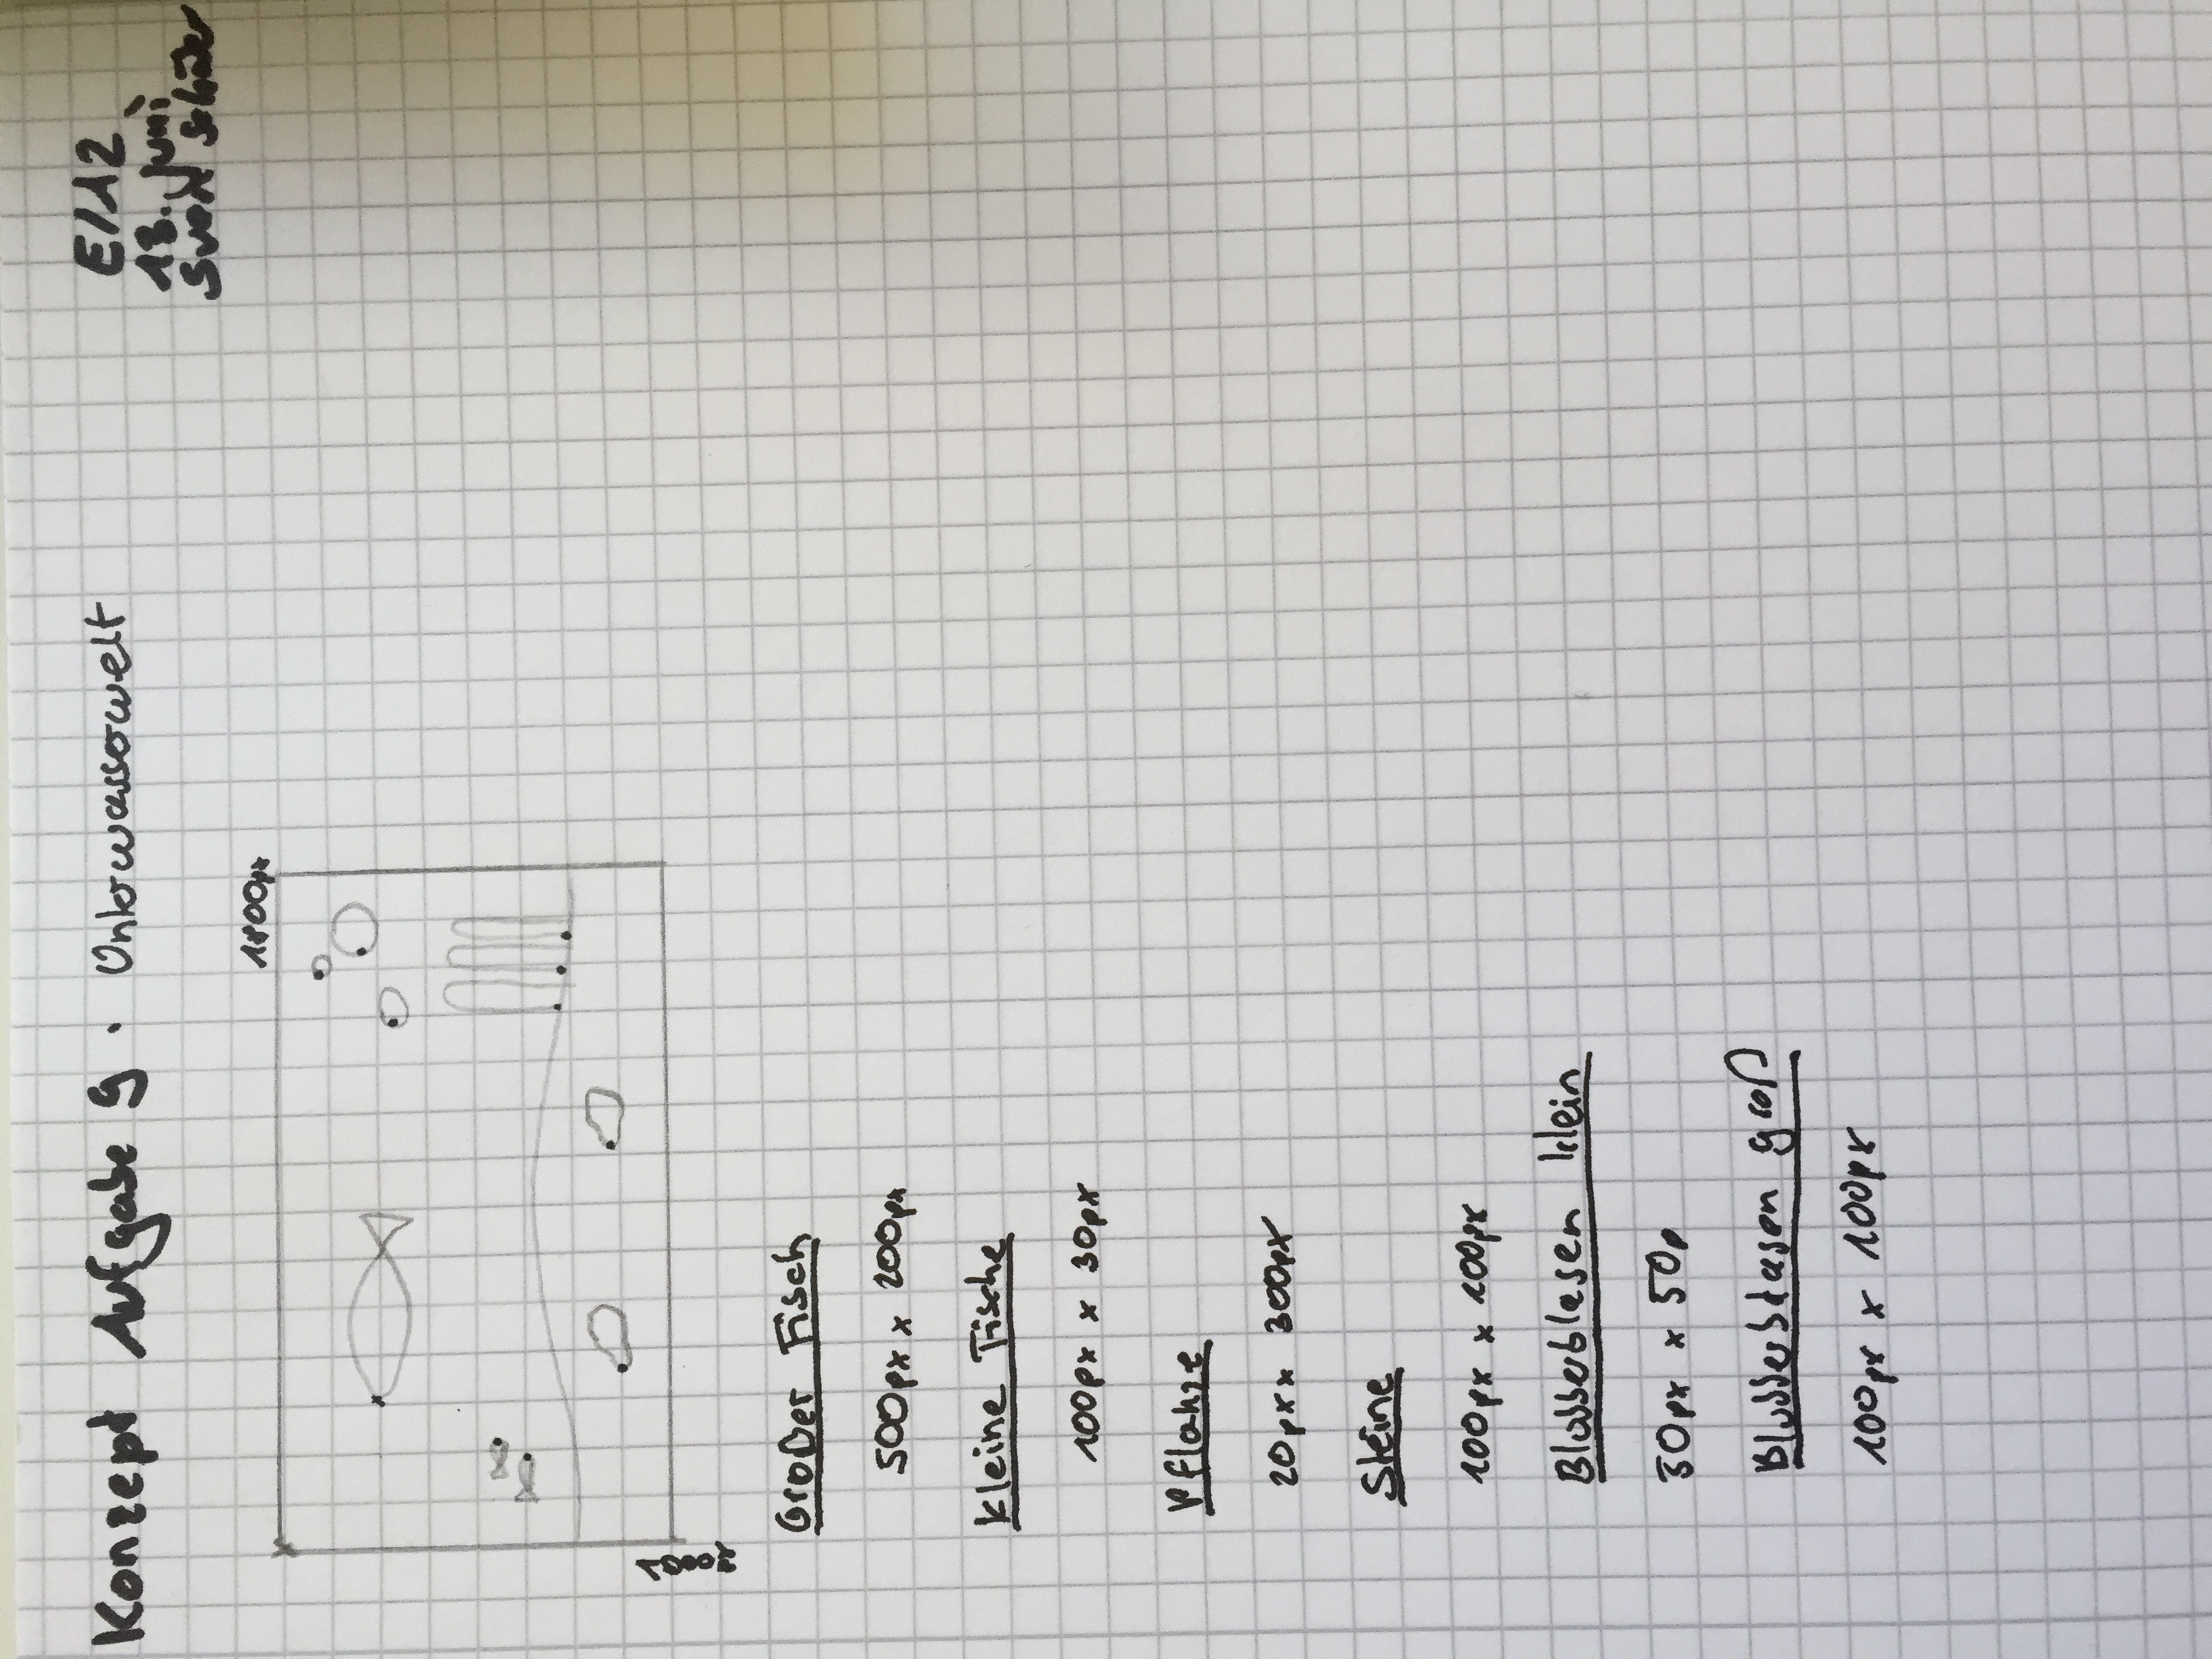 Konzept Aufgabe 9. Unterwasserwelt
EIA2
18. Juni
Sven Schäfer
1800px
1000px
Großer Fisch
500px x 200px
kleine Fische
100px x 30px
Pflanze
20px x 300px
Steine
100px x 100px
Blubberblasen klein
50px x 50p
Blubberblasen groß
100px x 100px